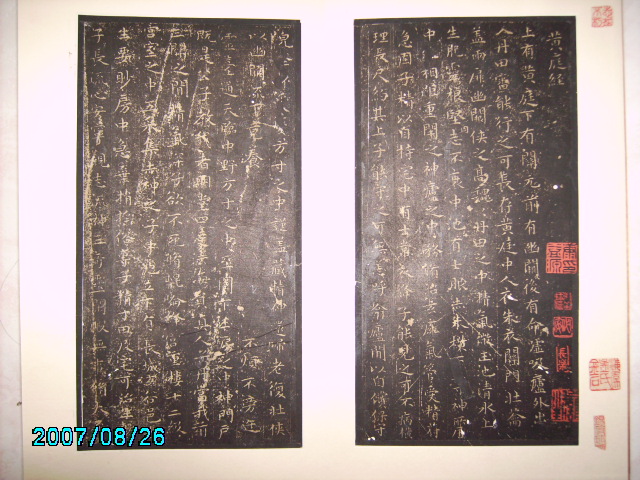 黃庭經
上有黃庭下有關元前有幽闕後有命廬吸廬外出
入丹田審能行之可長存黃庭中人衣朱衣關門壯籥
蓋兩扉幽闕俠之高魏〻丹田之中精氣微玉池清水上
生肥靈根堅志不衰中池有士服赤朱橫下三寸神所居
中外相距重閉之神廬之中務脩治玄㢕氣管受精符
急固子精以自持宅中有士常衣絳子能見之可不病橫
理長尺約其上子能守之可無恙呼噏廬間以自償保守
完堅身受慶方寸之中謹蓋藏精神還歸老復壯俠
以幽闕流下竟養
不煩不旁迕
靈臺通天臨中野方寸之中至關下玉房之中神門戶
既是公子教我者明堂四達法海員真人子丹當我前
三關之間精氣深子欲不死脩崑崙絳宮重樓十二級
宮室之中五采集赤神之子中池立下有長城玄谷邑
生要眇房中急棄捐搖俗專子精寸田尺宅可治生
子長流心安寧觀志流神三奇靈閒暇無事脩太
2007/08/26